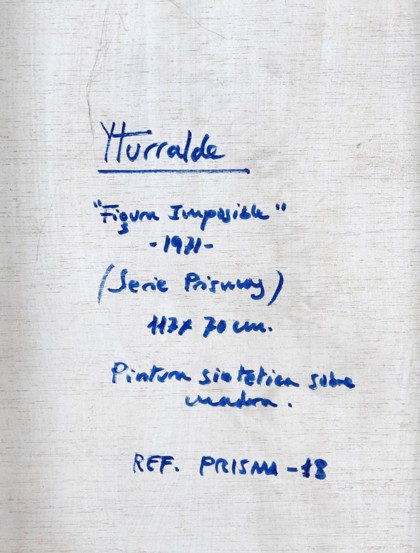 Yturralde
"Figura Imposible"
- 1971 -
(Serie Prismas)
117 x 70 cm.
Pintura sintética sobre
madera.
REF. PRISMA - 18